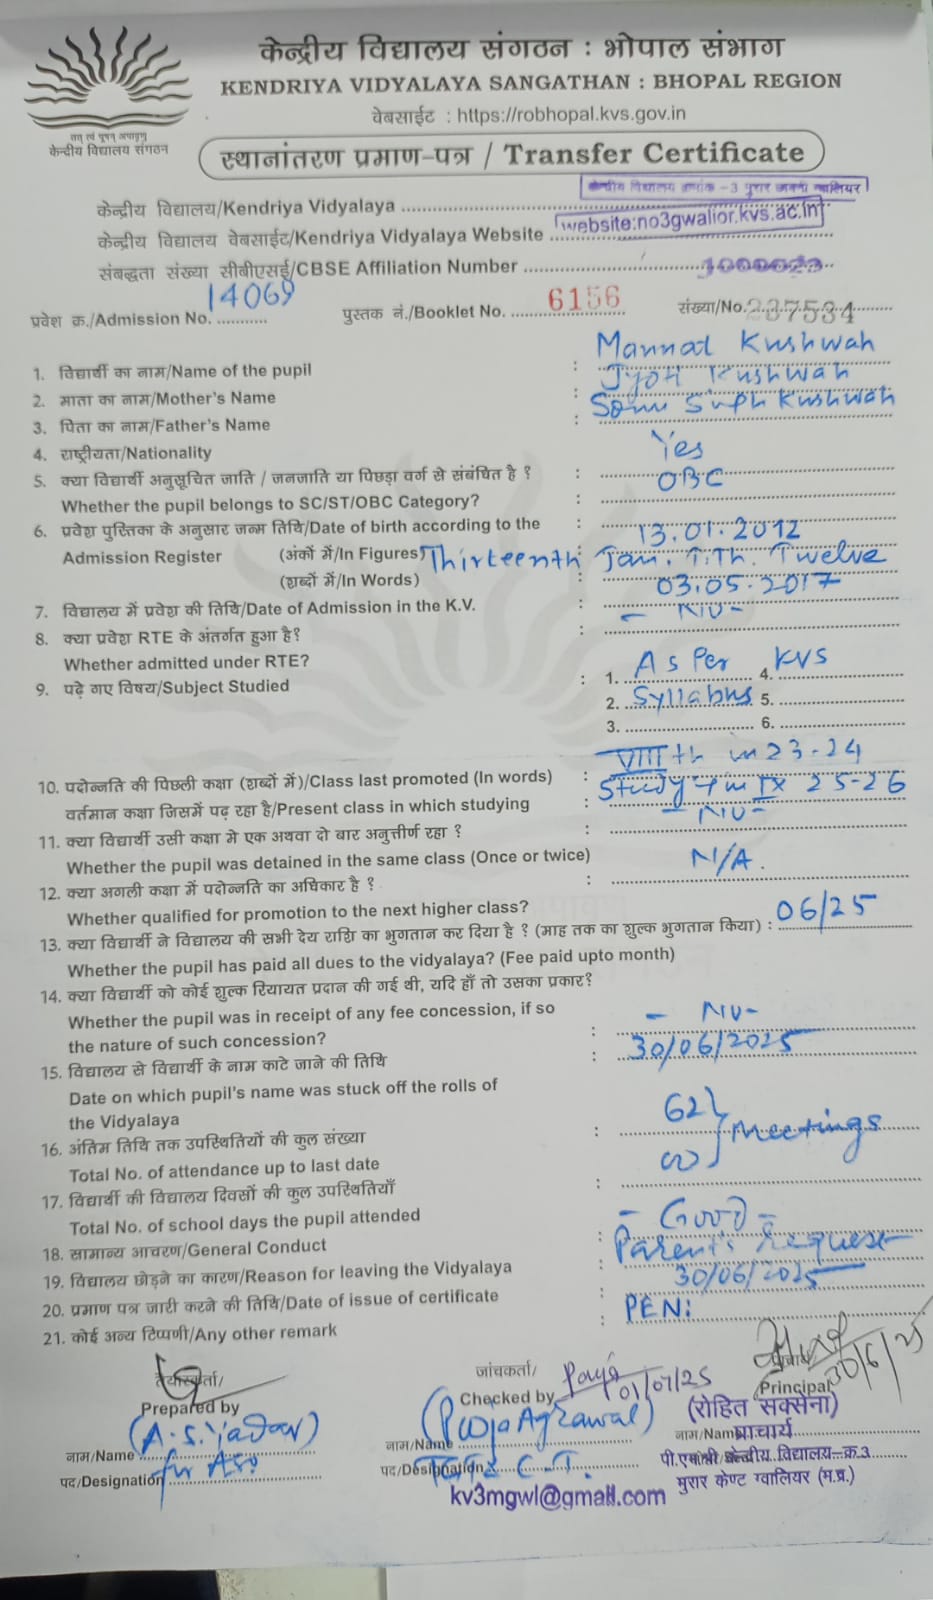 केन्द्रीय विद्यालय संगठन : भोपाल संभाग
KENDRIYA VIDYALAYA SANGATHAN : BHOPAL REGION
वेबसाईट : https://robhopal.kvs.gov.in
केन्द्रीय विद्यालय संगठन
स्थानांतरण प्रमाण-पत्र / Transfer Certificate
केन्द्रीय विद्यालय क्रमांक -3 मुरार छावनी ग्वालियर
केन्द्रीय विद्यालय/Kendriya Vidyalaya
केन्द्रीय विद्यालय वेबसाईट/Kendriya Vidyalaya Website website:no3gwalior.kvs.ac.in
संबद्धता संख्या सीबीएसई/CBSE Affiliation Number 1000023
प्रवेश क्र./Admission No. 14069 पुस्तक नं./Booklet No. 6156 संख्या/No. 237534
1. विद्यार्थी का नाम/Name of the pupil : Mannat Kushwah
2. माता का नाम/Mother's Name : Jyoti Kushwah
3. पिता का नाम/Father's Name : Sonu Singh Kushwah
4. राष्ट्रीयता/Nationality Yes
5. क्या विद्यार्थी अनुसूचित जाति / जनजाति या पिछड़ा वर्ग से संबंधित है ? : OBC
Whether the pupil belongs to SC/ST/OBC Category? :
6. प्रवेश पुस्तिका के अनुसार जन्म तिथि/Date of birth according to the : 13.01.2012
Admission Register (अंकों में/In Figures) Thirteenth Jan. T.Th. Twelve
(शब्दों में/In Words) : 03.05.2017
7. विद्यालय में प्रवेश की तिथि/Date of Admission in the K.V. : - NO -
8. क्या प्रवेश RTE के अंतर्गत हुआ है? :
Whether admitted under RTE?
9. पढ़े गए विषय/Subject Studied : 1. As Per 4. KVS
2. Syllabus 5.
3. 6.
VIII th in 23-24
10. पदोन्नति की पिछली कक्षा (शब्दों में)/Class last promoted (In words) : Study in IX 25-26
वर्तमान कक्षा जिसमें पढ़ रहा है/Present class in which studying : - NO -
11. क्या विद्यार्थी उसी कक्षा मे एक अथवा दो बार अनुत्तीर्ण रहा ? :
Whether the pupil was detained in the same class (Once or twice) N/A.
12. क्या अगली कक्षा में पदोन्नति का अधिकार है ? :
Whether qualified for promotion to the next higher class?
13. क्या विद्यार्थी ने विद्यालय की सभी देय राशि का भुगतान कर दिया है ? (माह तक का शुल्क भुगतान किया) : 06/25
Whether the pupil has paid all dues to the vidyalaya? (Fee paid upto month)
14. क्या विद्यार्थी को कोई शुल्क रियायत प्रदान की गई थी, यदि हाँ तो उसका प्रकार?
Whether the pupil was in receipt of any fee concession, if so - NO -
the nature of such concession? :
15. विद्यालय से विद्यार्थी के नाम काटे जाने की तिथि : 30/06/2025
Date on which pupil's name was stuck off the rolls of
the Vidyalaya 62
16. अंतिम तिथि तक उपस्थितियों की कुल संख्या : Meetings
Total No. of attendance up to last date
17. विद्यार्थी की विद्यालय दिवसों की कुल उपस्थितियाँ :
Total No. of school days the pupil attended - Good -
18. सामान्य आचरण/General Conduct : Parent's Request
19. विद्यालय छोड़ने का कारण/Reason for leaving the Vidyalaya : 30/06/2025
20. प्रमाण पत्र जारी करने की तिथि/Date of issue of certificate :
21. कोई अन्य टिप्पणी/Any other remark : PEN:
तैयारकर्ता/ जांचकर्ता/ 30/6/25
Prepared by Checked by 01/07/25 Principal
(A.S. Yadav) (Pooja Agrawal) (रोहित सक्सेना)
नाम/Name नाम/Name नाम/Name प्राचार्य
पद/Designation for ASO पद/Designation C.T. पी.एम श्री केन्द्रीय विद्यालय-क्र.3
kv3mgwl@gmail.com मुरार केण्ट ग्वालियर (म.प्र.)